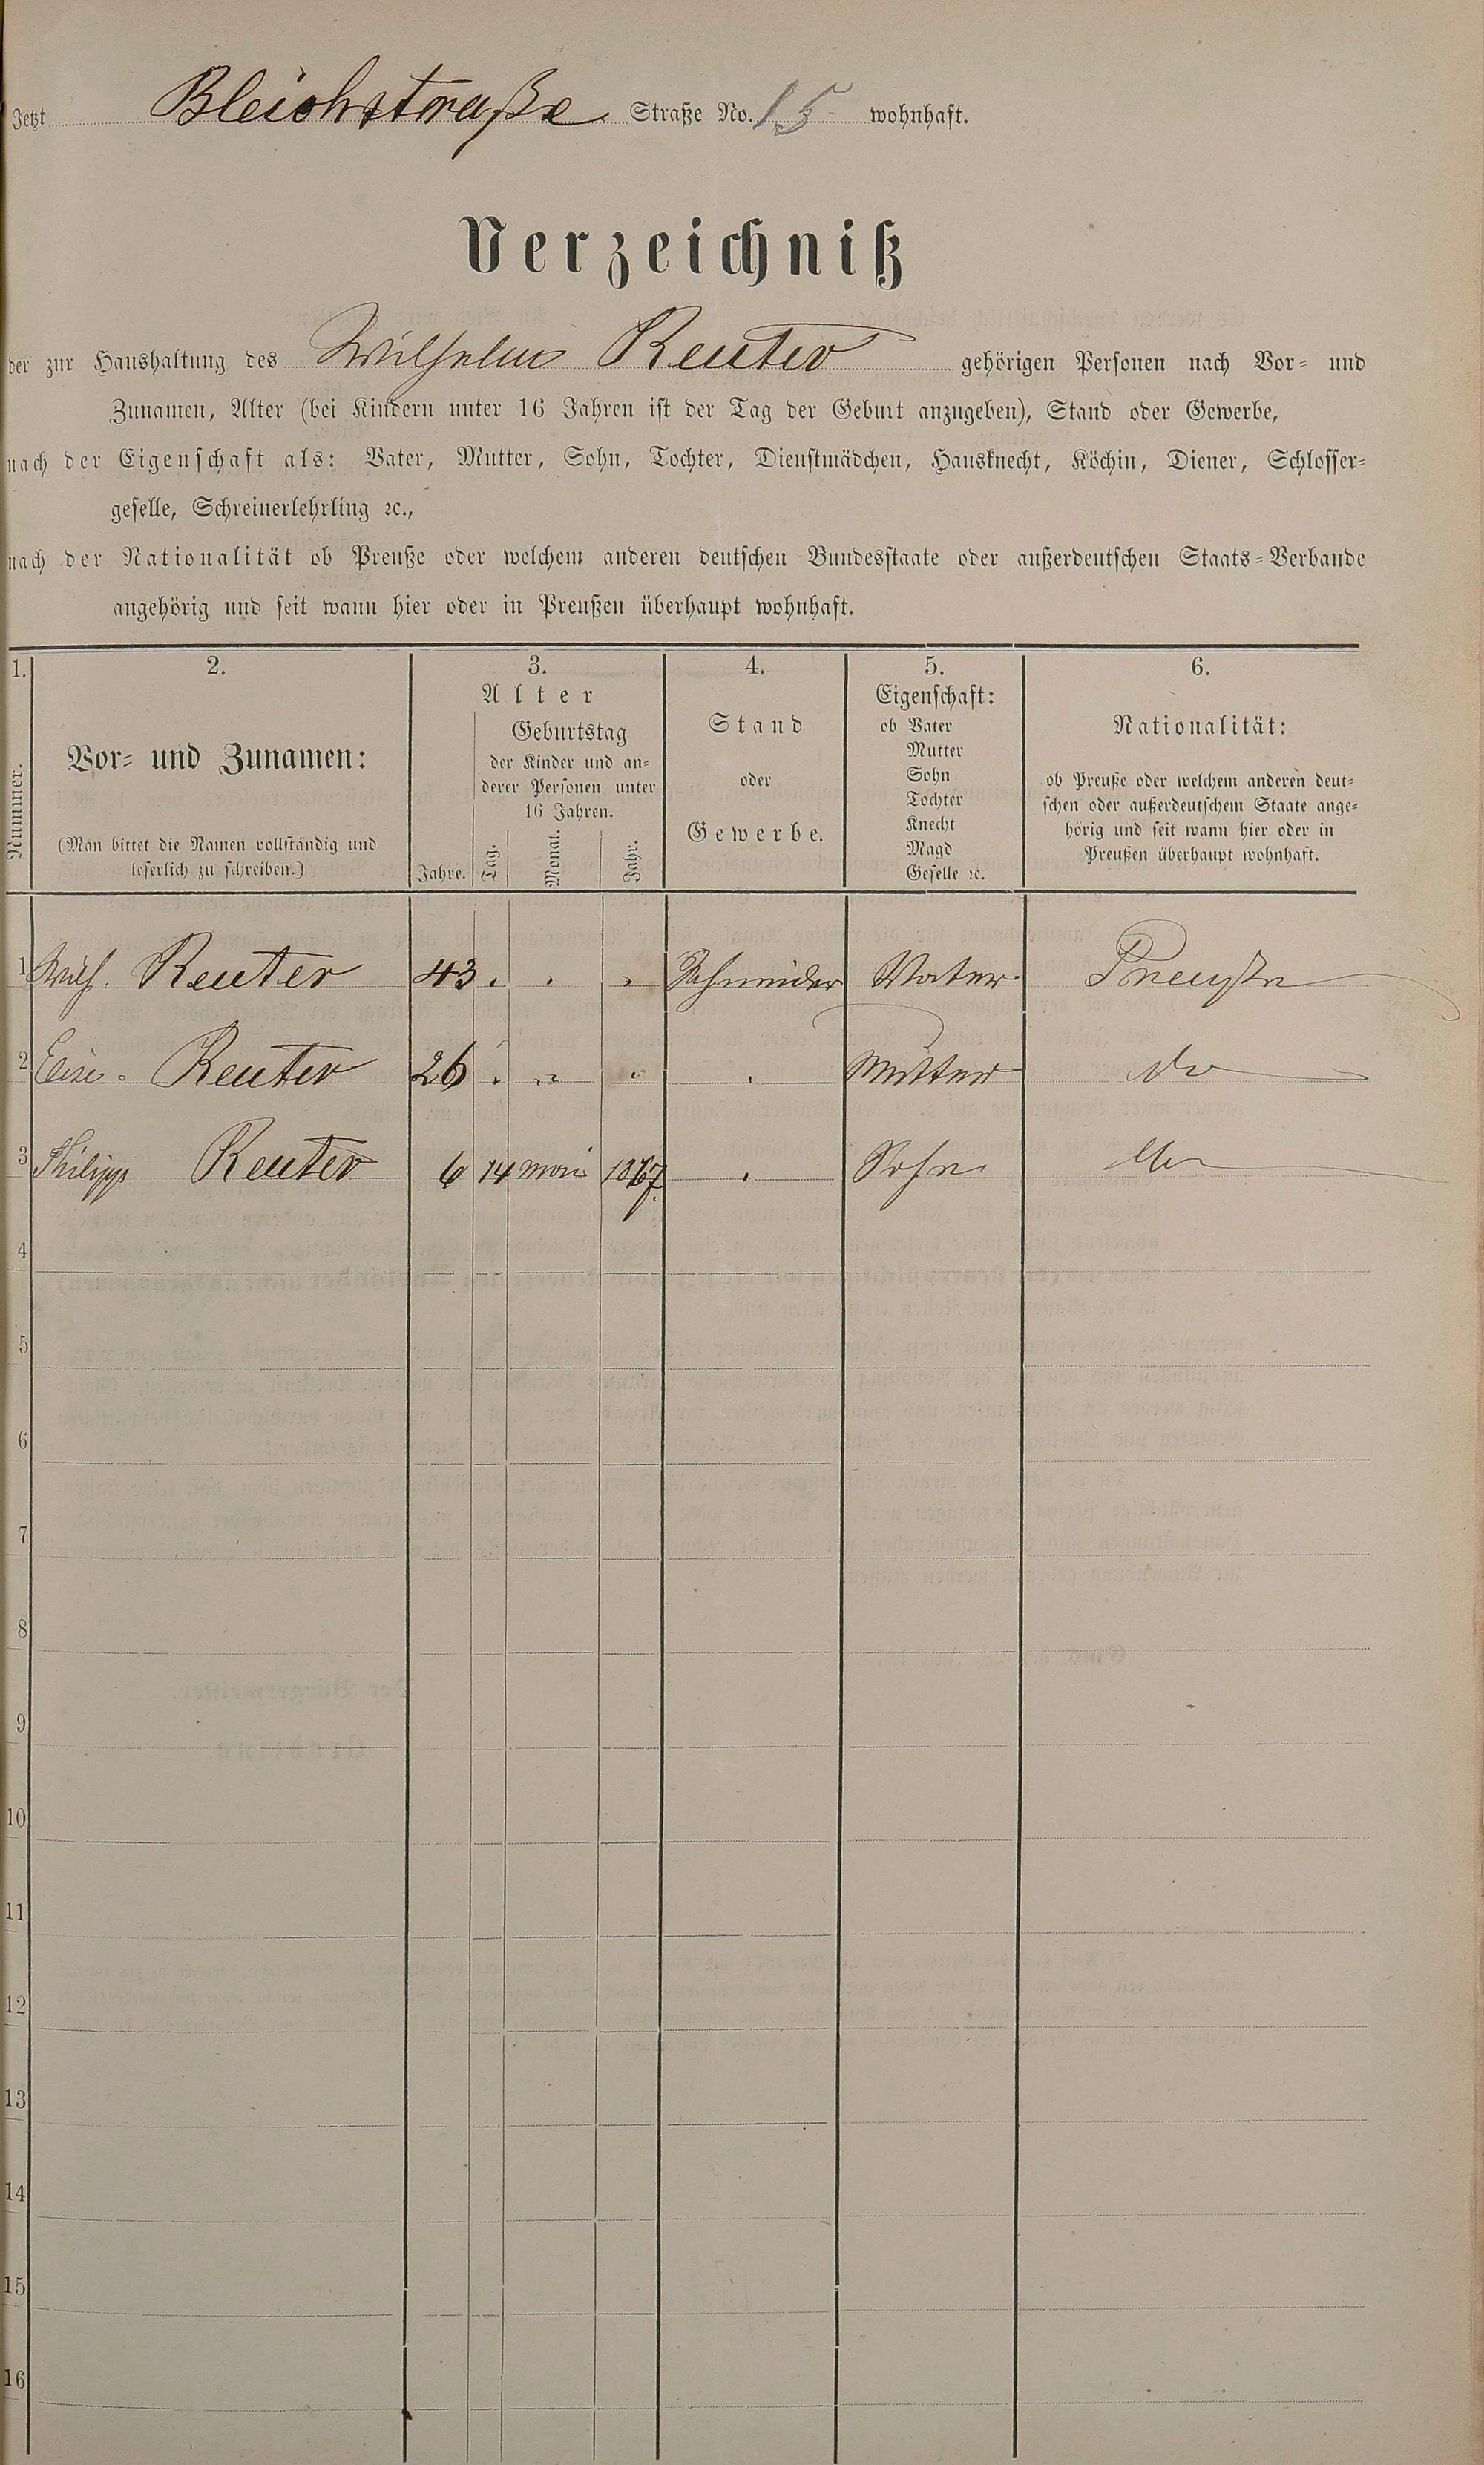 Jetzt Bleichstraße Straße No. 15 wohnhaft.
Verzeichniß
der zur Haushaltung des Wilhelm Reuter gehörigen Personen nach Vor- und
Zunamen, Alter (bei Kindern unter 16 Jahren ist der Tag der Geburt anzugeben), Stand oder Gewerbe,
nach der Eigenschaft als: Vater, Mutter, Sohn, Tochter, Dienstmädchen, Hausknecht, Köchin, Diener, Schlosser-
geselle, Schreinerlehrling ꝛc.,
nach der Nationalität ob Preuße oder welchem anderen deutschen Bundesstaate oder außerdeutschen Staats-Verbande
angehörig und seit wann hier oder in Preußen überhaupt wohnhaft.
1.
Nummer.
2.
Vor- und Zunamen:
(Man bittet die Namen vollständig und
leserlich zu schreiben.)
3.
Alter
Jahre.
Geburtstag
der Kinder und an-
derer Personen unter
16 Jahren.
Tag.
Monat.
Jahr.
4.
Stand
oder
Gewerbe.
5.
Eigenschaft:
ob Vater
Mutter
Sohn
Tochter
Knecht
Magd
Geselle ꝛc.
6.
Nationalität:
ob Preuße oder welchem anderen deut-
schen oder außerdeutschem Staate ange-
hörig und seit wann hier oder in
Preußen überhaupt wohnhaft.
1 Wilh. Reuter 43 . . . Schneider Vater Preuße
2 Elise Reuter 26 . „ . . Mutter do
3 Philipp Reuter 6 14 Mai 1867 . Sohn do
4
5
6
7
8
9
10
11
12
13
14
15
16